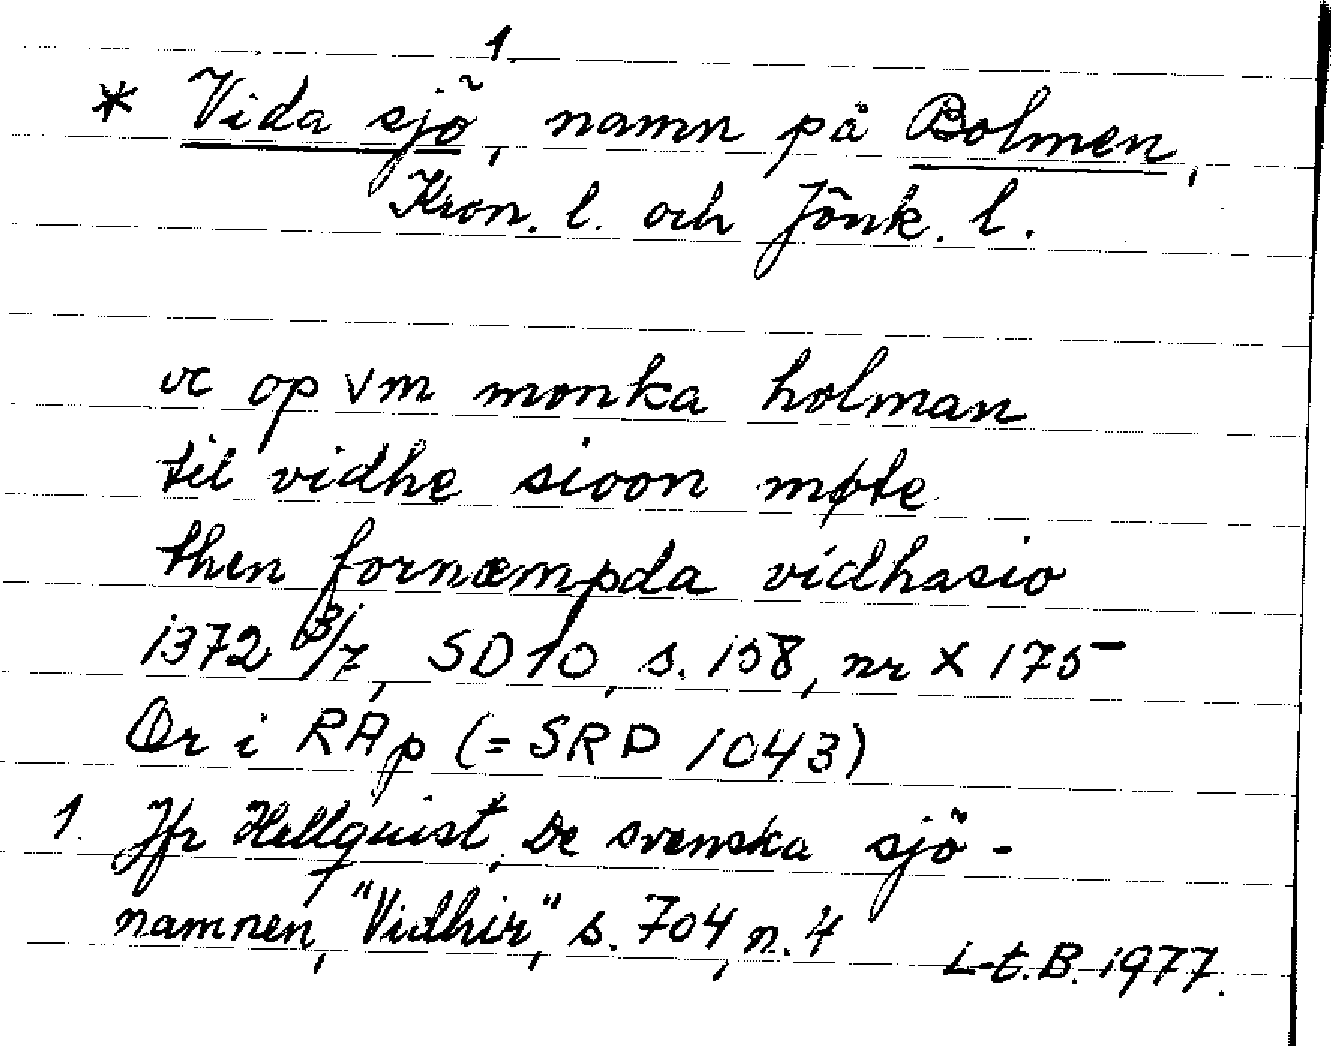 * Vida sjö¹, namn på Bolmen,
Kron. l. och Jönk. l.
oc op vm monka holman
til vidhe sioon møte
then fornæmpda vidhasio
1372 3/7, SD 10, s. 158, nr X 175
Or i RAp (= SRP 1043)
1. Jfr Hellquist, De svenska sjö-
namnen, "Vidhir", s. 704, n. 4
L-t. B. 1977.